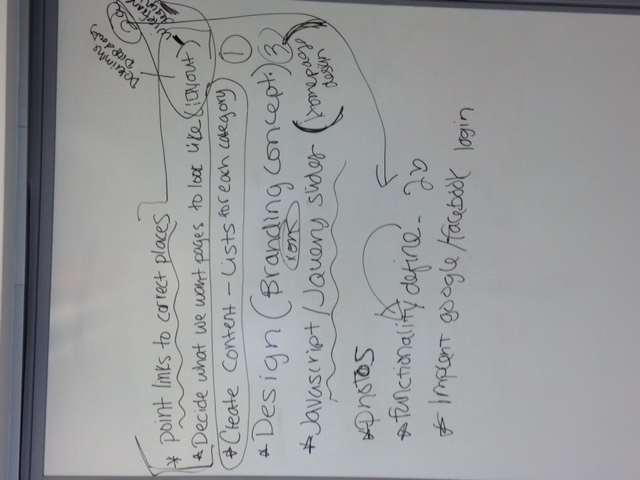 Determine
Dropdowns
2a
* point links to correct places
* Decide what we want pages to look like (layout) - wireframe
design
* Create Content - Lists for each category 1
* Design (Branding concept.) 3
* Javascript/Jquery slider (homepage
design)
* photos
* functionality define. 2b
* Implent google/facebook login